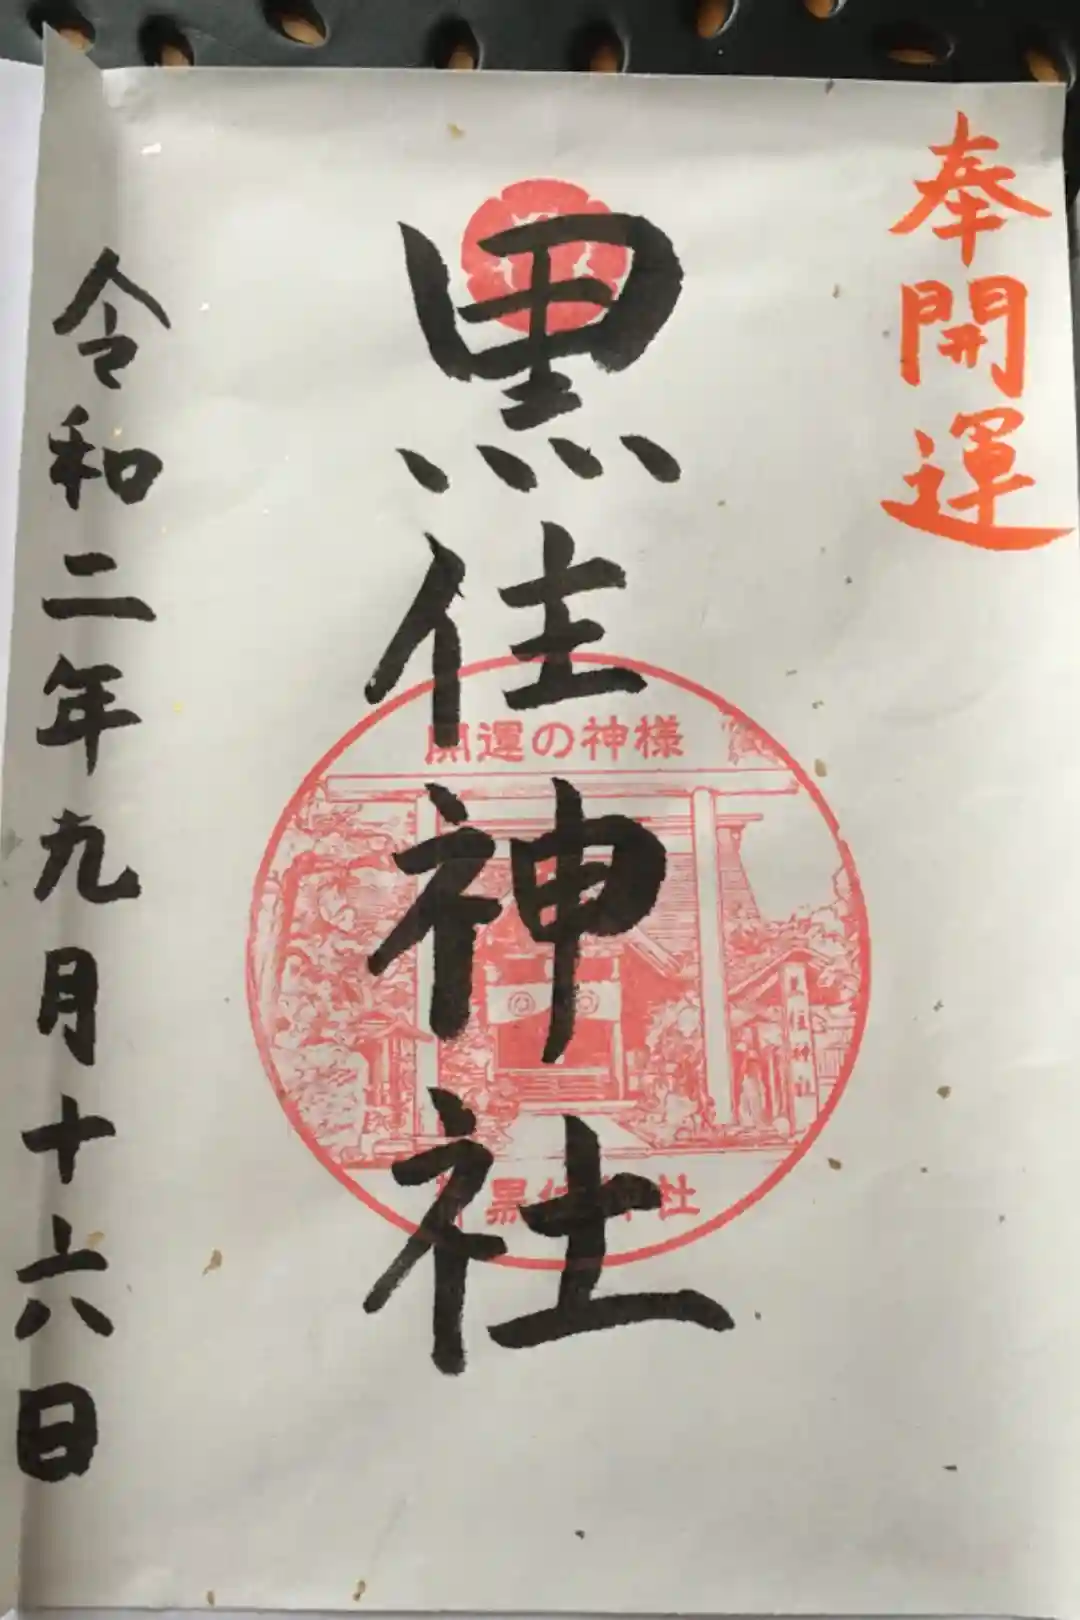 奉開運
黒住神社
令和二年九月十六日
開運の神様
黒住神社
黒住神社